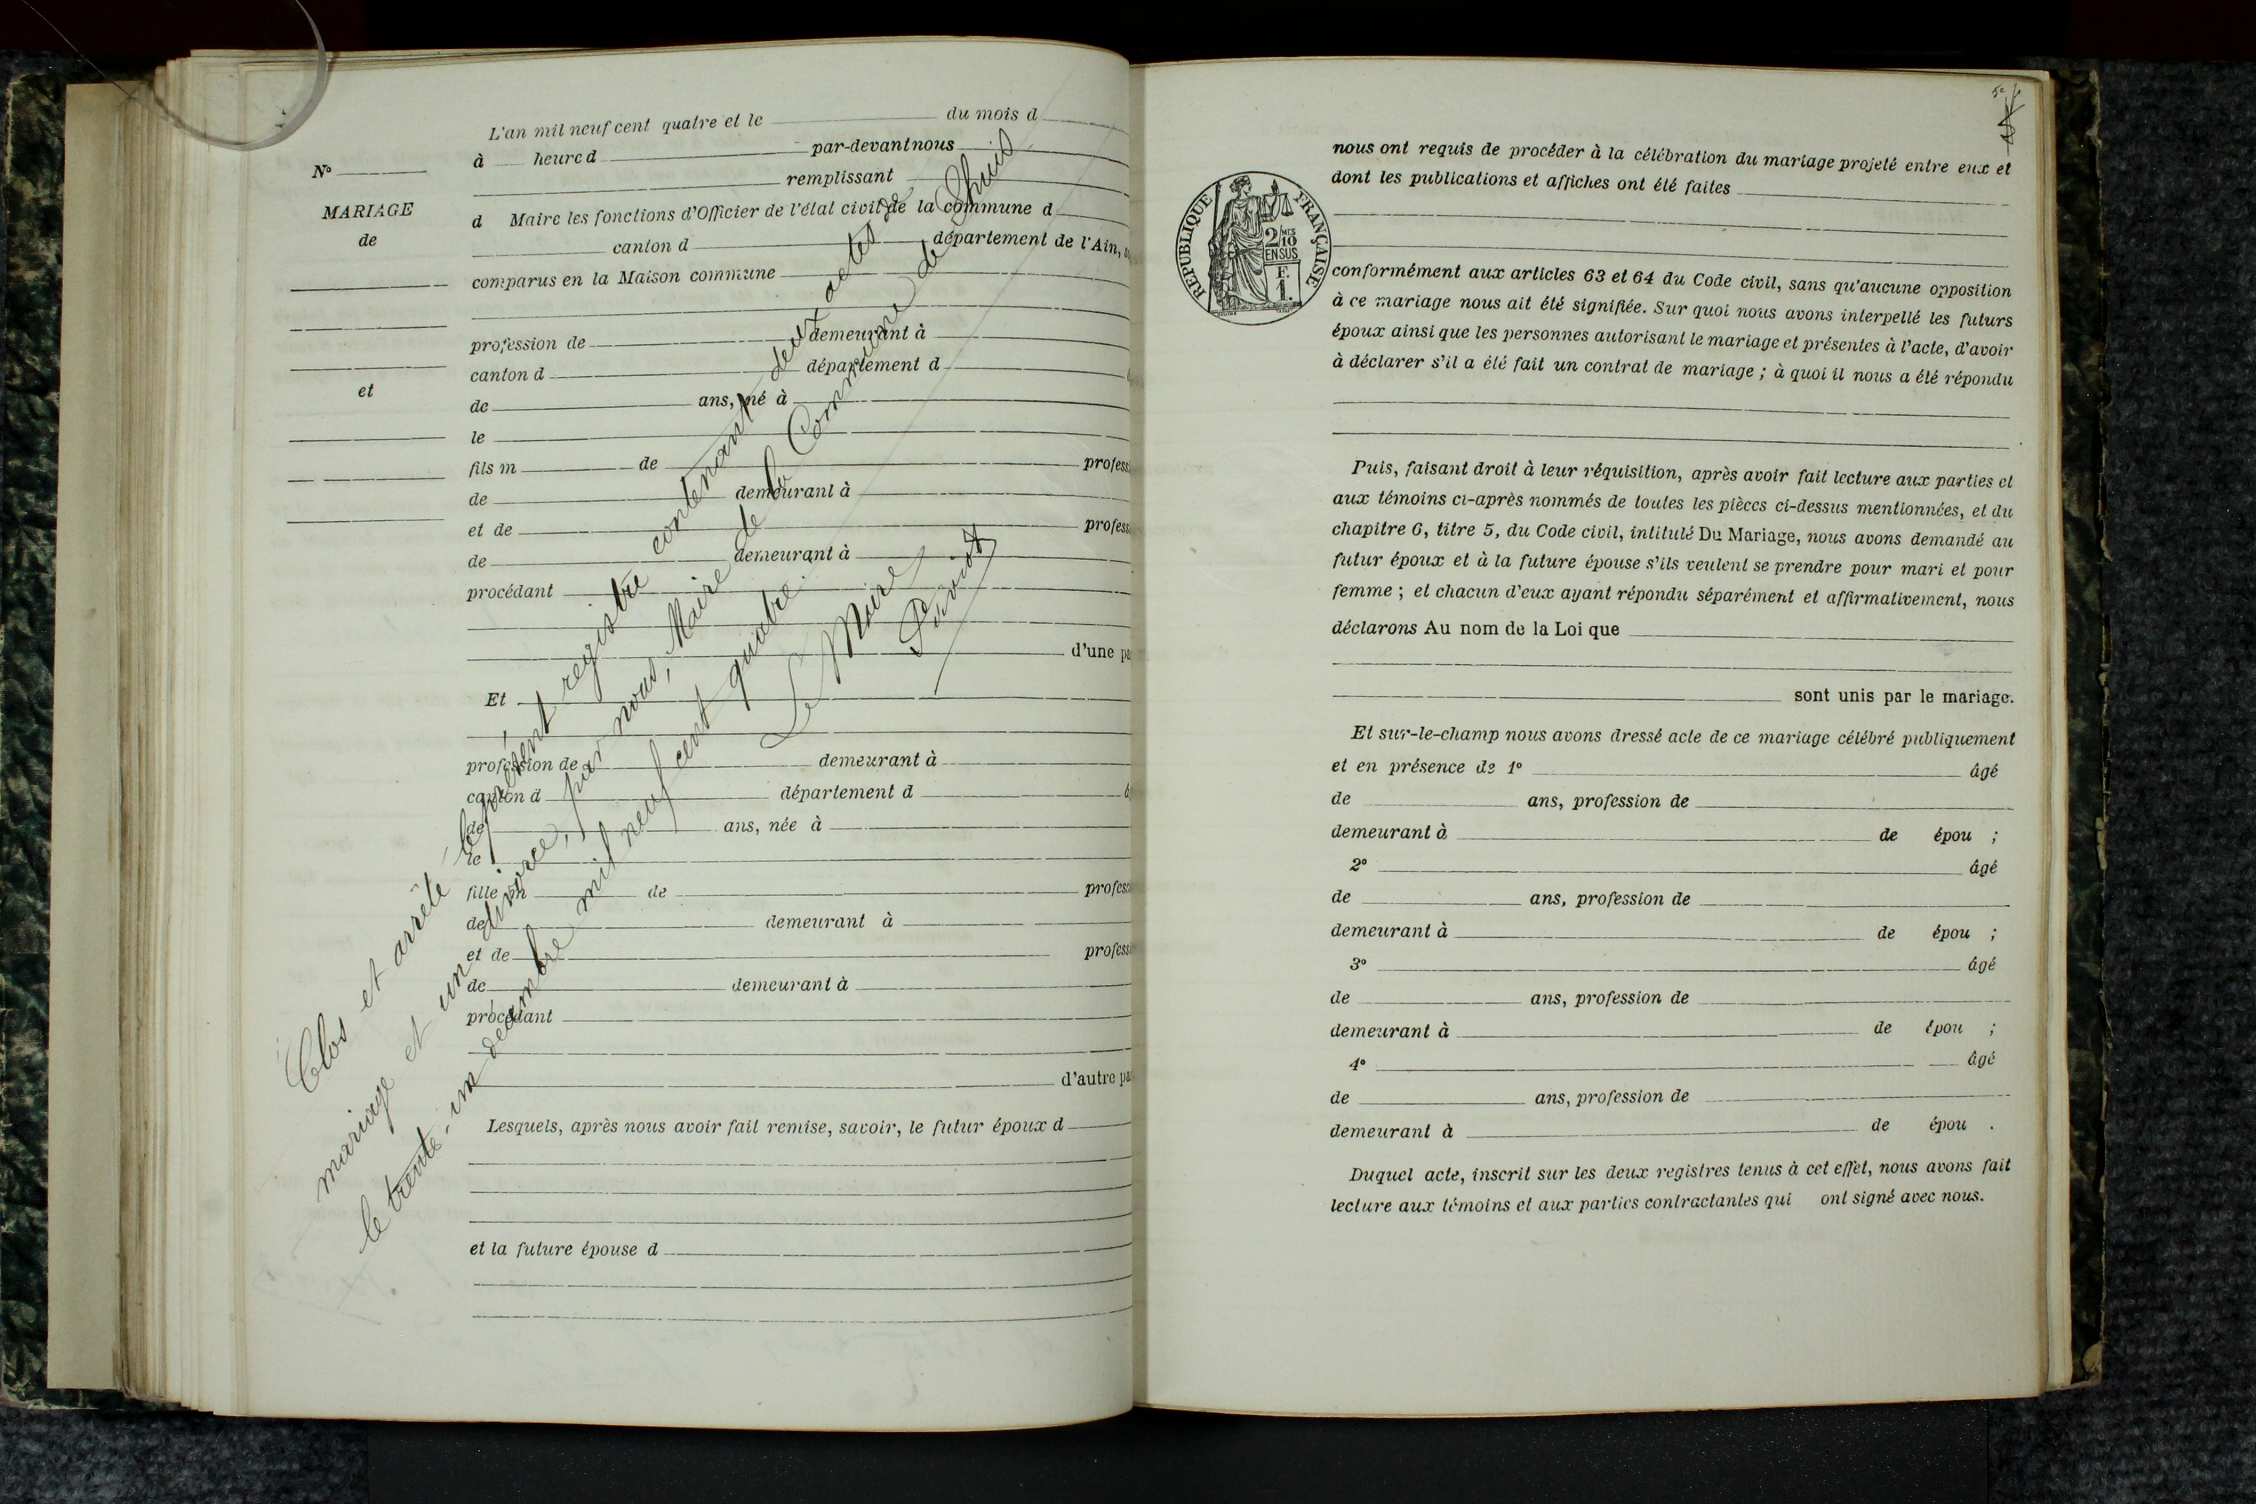 N°
MARIAGE
de
et
L'an mil neuf cent quatre et le du mois d
à heure d par-devant nous
remplissant
d Maire les fonctions d'Officier de l'état civil de la commune d
canton d département de l'Ain,
comparus en la Maison commune
profession de demeurant à
canton d département d
de ans, né à
le
fils m de profess
de demeurant à
et de profess
de demeurant à
procédant
d'une pa
Et
profession de demeurant à
canton d département d
de ans, née à
le
fille m de profess
de demeurant à
et de profess
de demeurant à
procédant
d'autre pa
Lesquels, après nous avoir fait remise, savoir, le futur époux d
et la future épouse d
Clos et arrêté le présent registre contenant deux actes de
mariage et un divorce, par nous, Maire de la Commune de Thuis
le trente-un décembre mil neuf cent quatre.
Le Maire
nous ont requis de procéder à la célébration du mariage projeté entre eux et
dont les publications et affiches ont été faites
RÉPUBLIQUE FRANÇAISE
2/10
EN SUS
F.
1.
conformément aux articles 63 et 64 du Code civil, sans qu'aucune opposition
à ce mariage nous ait été signifiée. Sur quoi nous avons interpellé les futurs
époux ainsi que les personnes autorisant le mariage et présentes à l'acte, d'avoir
à déclarer s'il a été fait un contrat de mariage ; à quoi il nous a été répondu
Puis, faisant droit à leur réquisition, après avoir fait lecture aux parties et
aux témoins ci-après nommés de toutes les pièces ci-dessus mentionnées, et du
chapitre 6, titre 5, du Code civil, intitulé Du Mariage, nous avons demandé au
futur époux et à la future épouse s'ils veulent se prendre pour mari et pour
femme ; et chacun d'eux ayant répondu séparément et affirmativement, nous
déclarons Au nom de la Loi que
sont unis par le mariage.
Et sur-le-champ nous avons dressé acte de ce mariage célébré publiquement
et en présence de 1° âgé
de ans, profession de
demeurant à de épou ;
2° âgé
de ans, profession de
demeurant à de épou ;
3° âgé
de ans, profession de
demeurant à de épou ;
4° âgé
de ans, profession de
demeurant à de épou .
Duquel acte, inscrit sur les deux registres tenus à cet effet, nous avons fait
lecture aux témoins et aux parties contractantes qui ont signé avec nous.